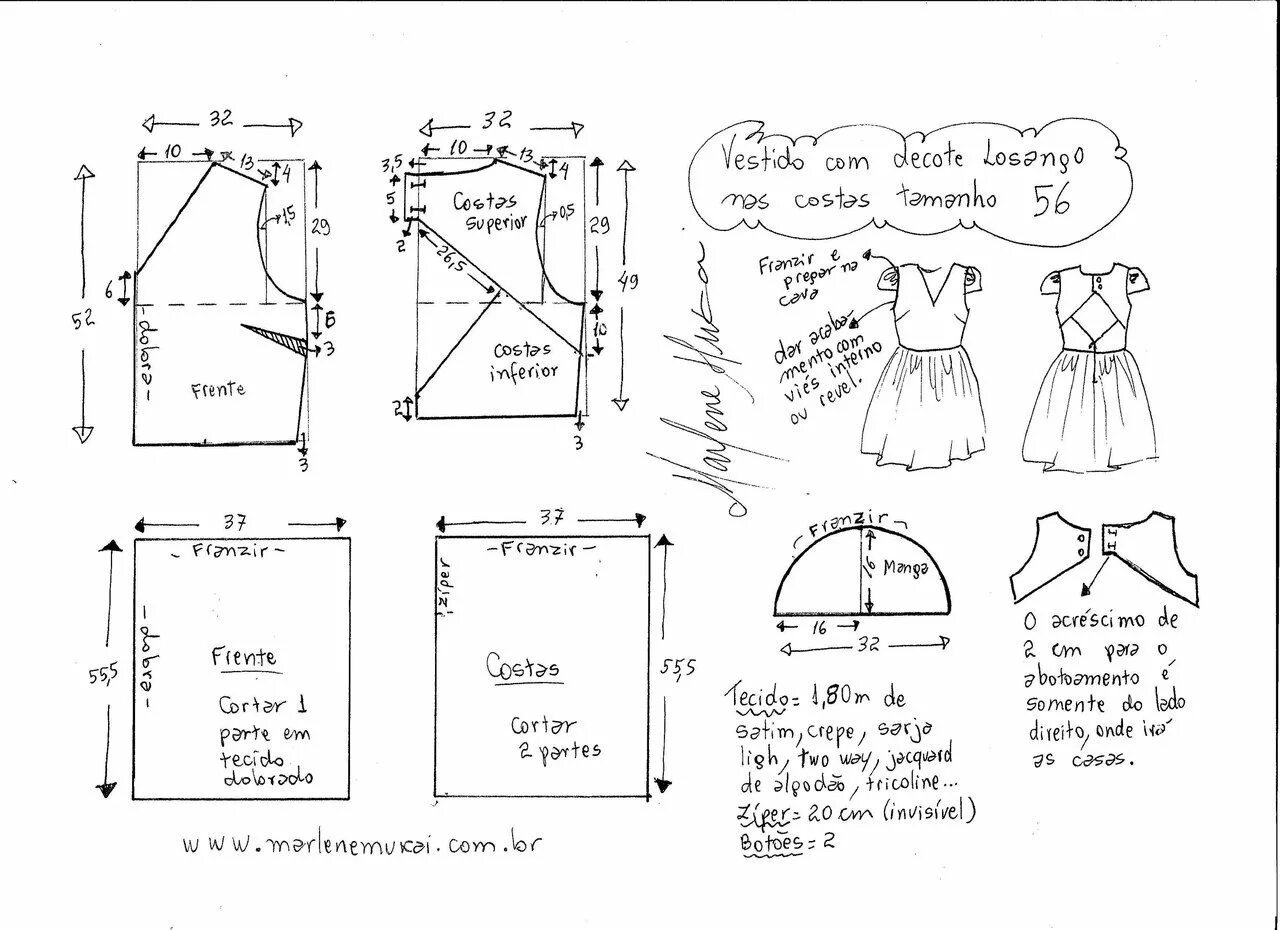 Vestido com decote Losango
nas costas tamanho 56
32
10
13
4
1,5
29
6
52
dobra
6
3
Frente
3
32
3,5
10
13
4
5
Costas
Superior
0,5
29
2
26,5
49
10
Costas
inferior
2
3
Franzir e
prepar na
cava
dar acaba-
mento com
viés interno
ou revel.
Marlene Mukai
37
- Franzir -
55,5
- dobra -
Frente
Cortar 1
parte em
tecido
dolorado
37
- Franzir -
zíper
55,5
Costas
Cortar
2 partes
Franzir
16
Manga
16
32
O acréscimo de
2 cm para o
abotoamento é
somente do lado
direito, onde irá
as casas.
Tecido = 1,80m de
satim, crepe, sarja
ligh, two way, jacquard
de algodão, tricoline...
Zíper = 20 cm (invisível)
Botões = 2
www.marlenemukai.com.br